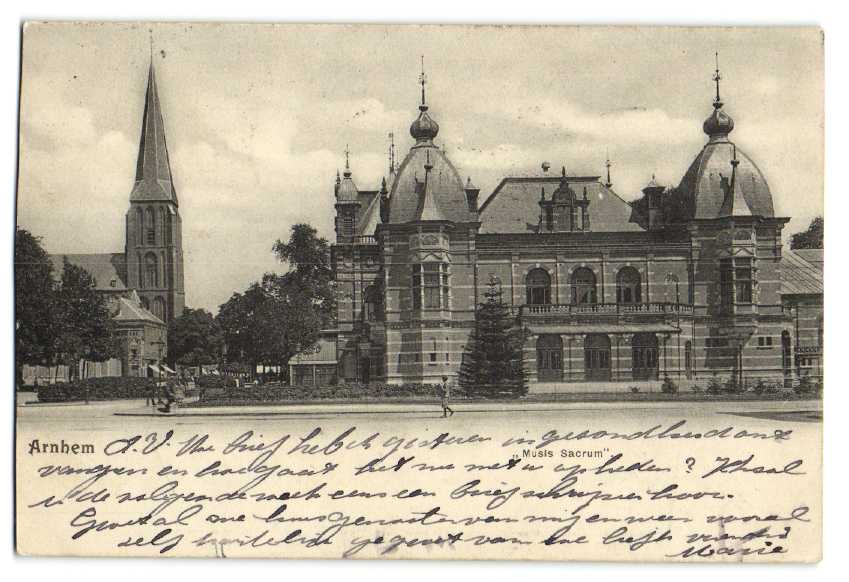 Arnhem
„Musis Sacrum"
A.V. Uw brief heb ik gisteren in gezondheid ont
vangen en hoe gaat het nu met u op heden? Ik zal
u de volgende week eens een brief schrijven hoor.
Groet al uw huisgenooten van mij en wees vooral
zelf hartelijk gegroet van uw liefh vriendin
Marie